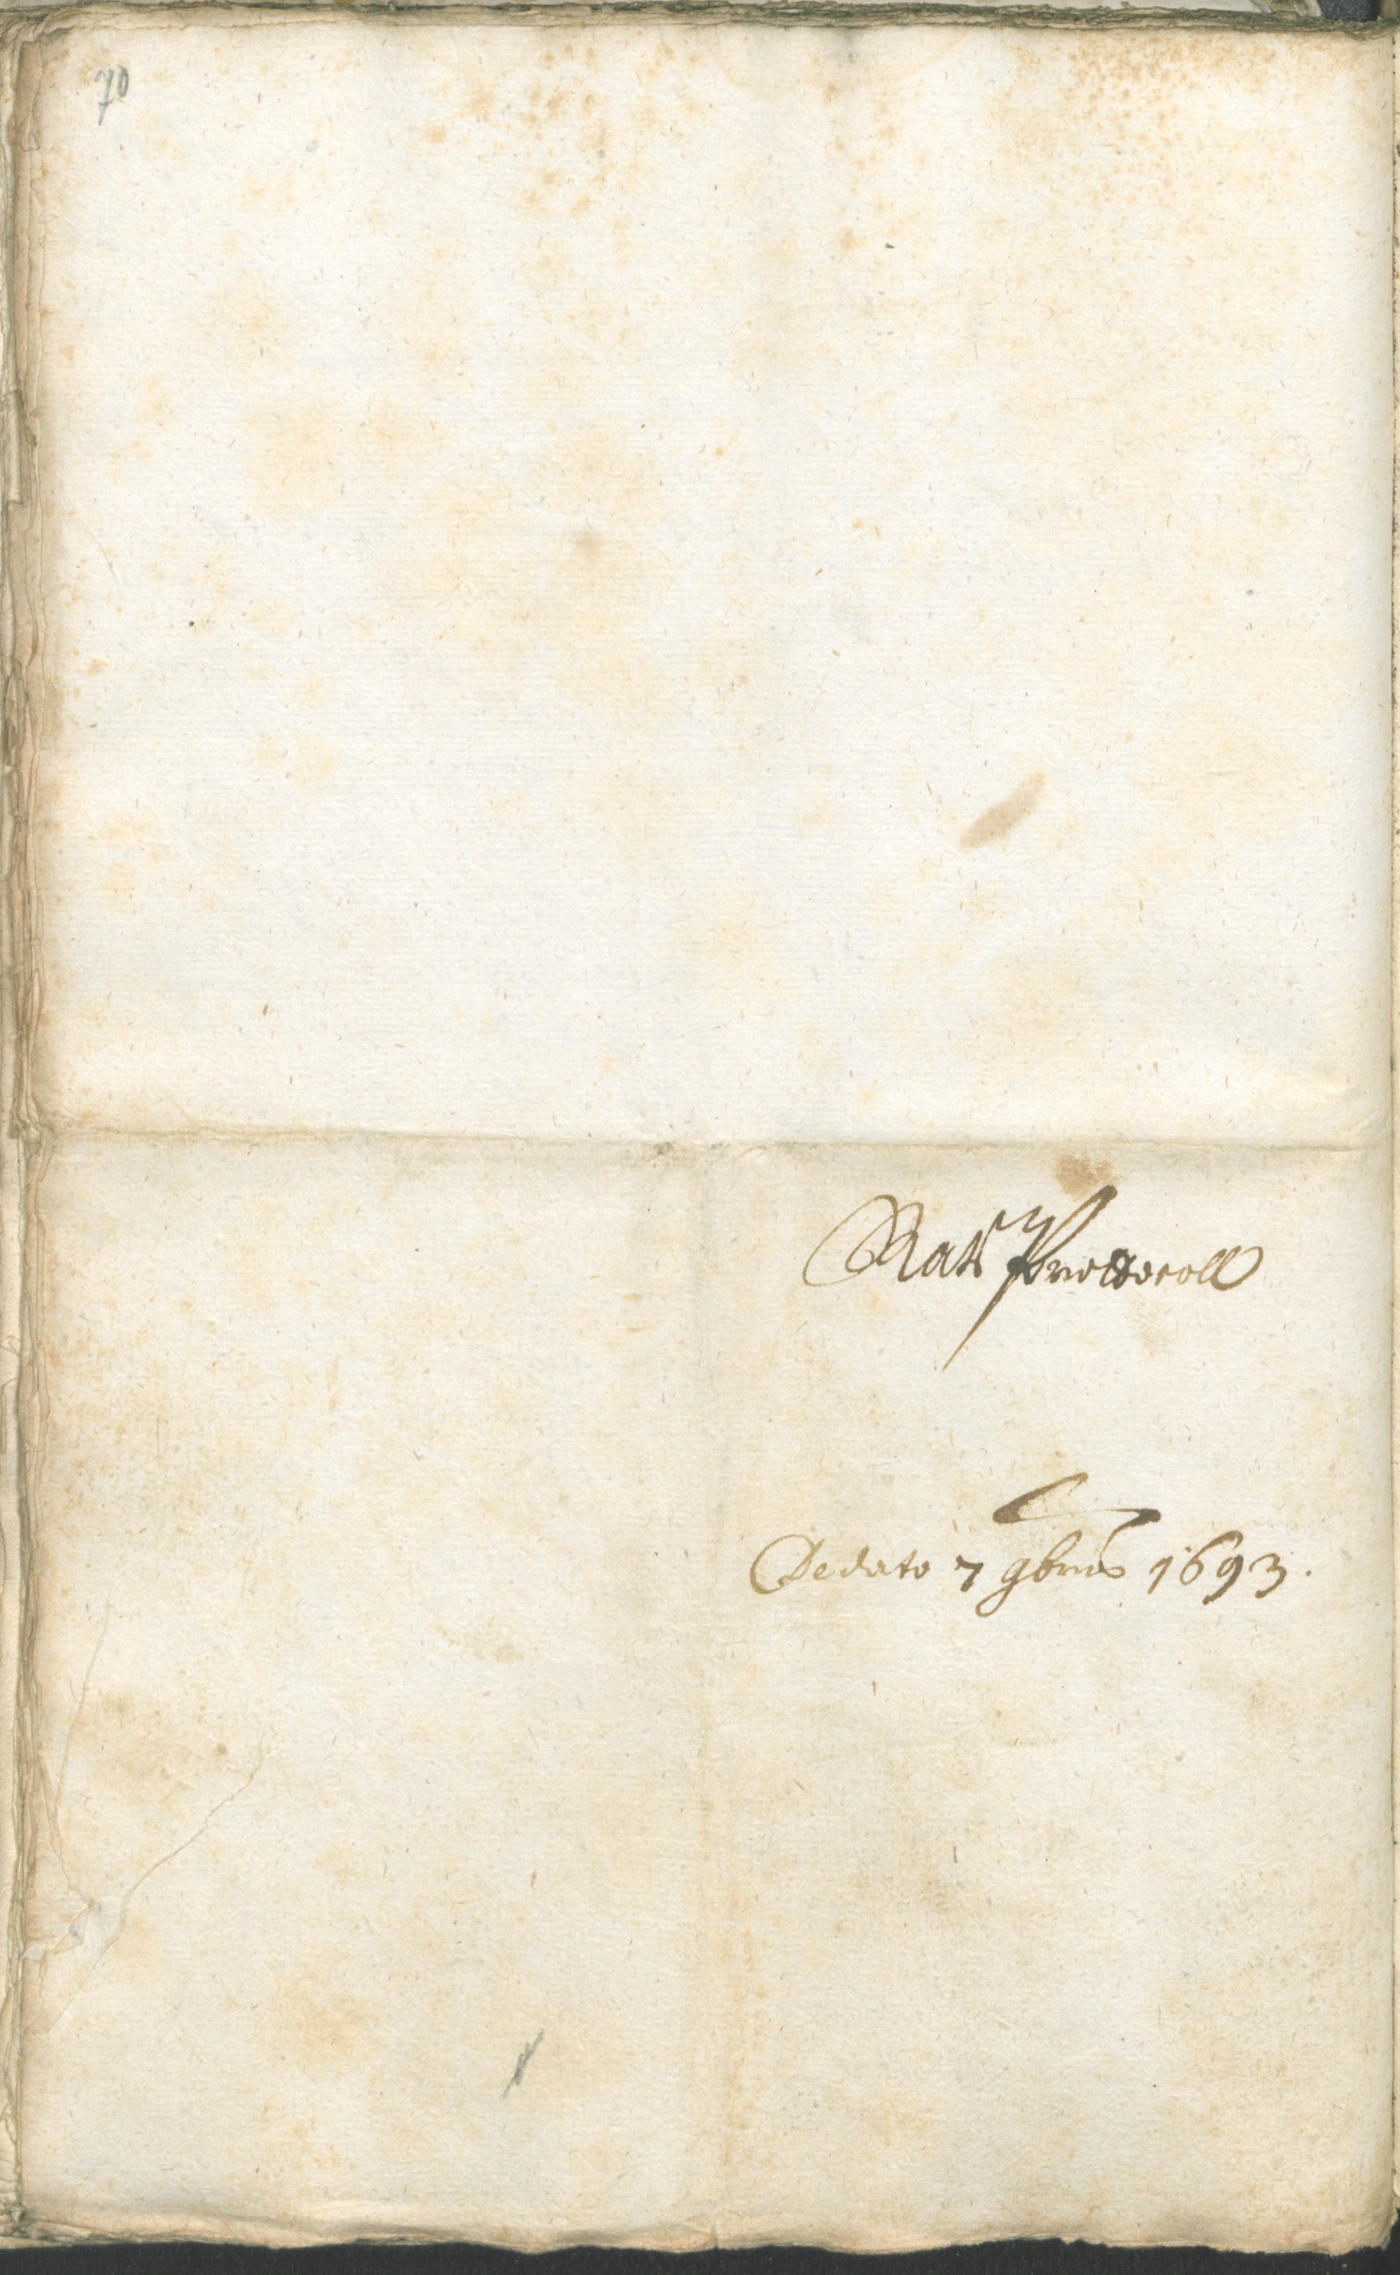 70
Rats Prottocoll
De dato 7 9bris 1693.